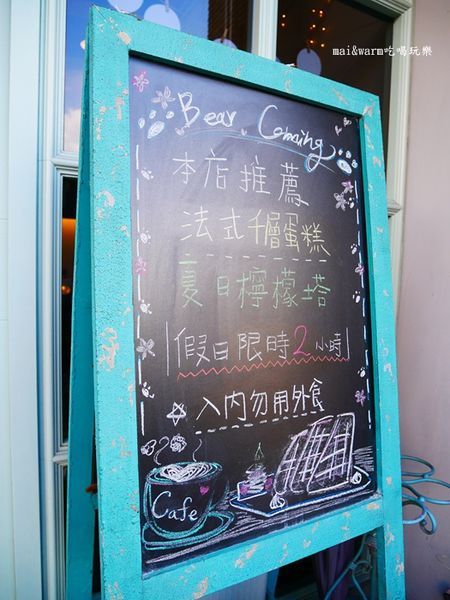 mai&warm吃喝玩樂
Bear Comaing
本店推薦
法式千層蛋糕
夏日檸檬塔
假日限時2小時
入內勿用外食
Cafe